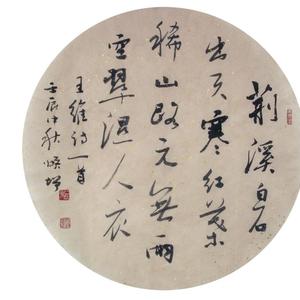 荆溪白石
出天寒红葉
稀山路元無雨
空翠濕人衣
王维诗一首
壬辰中秋